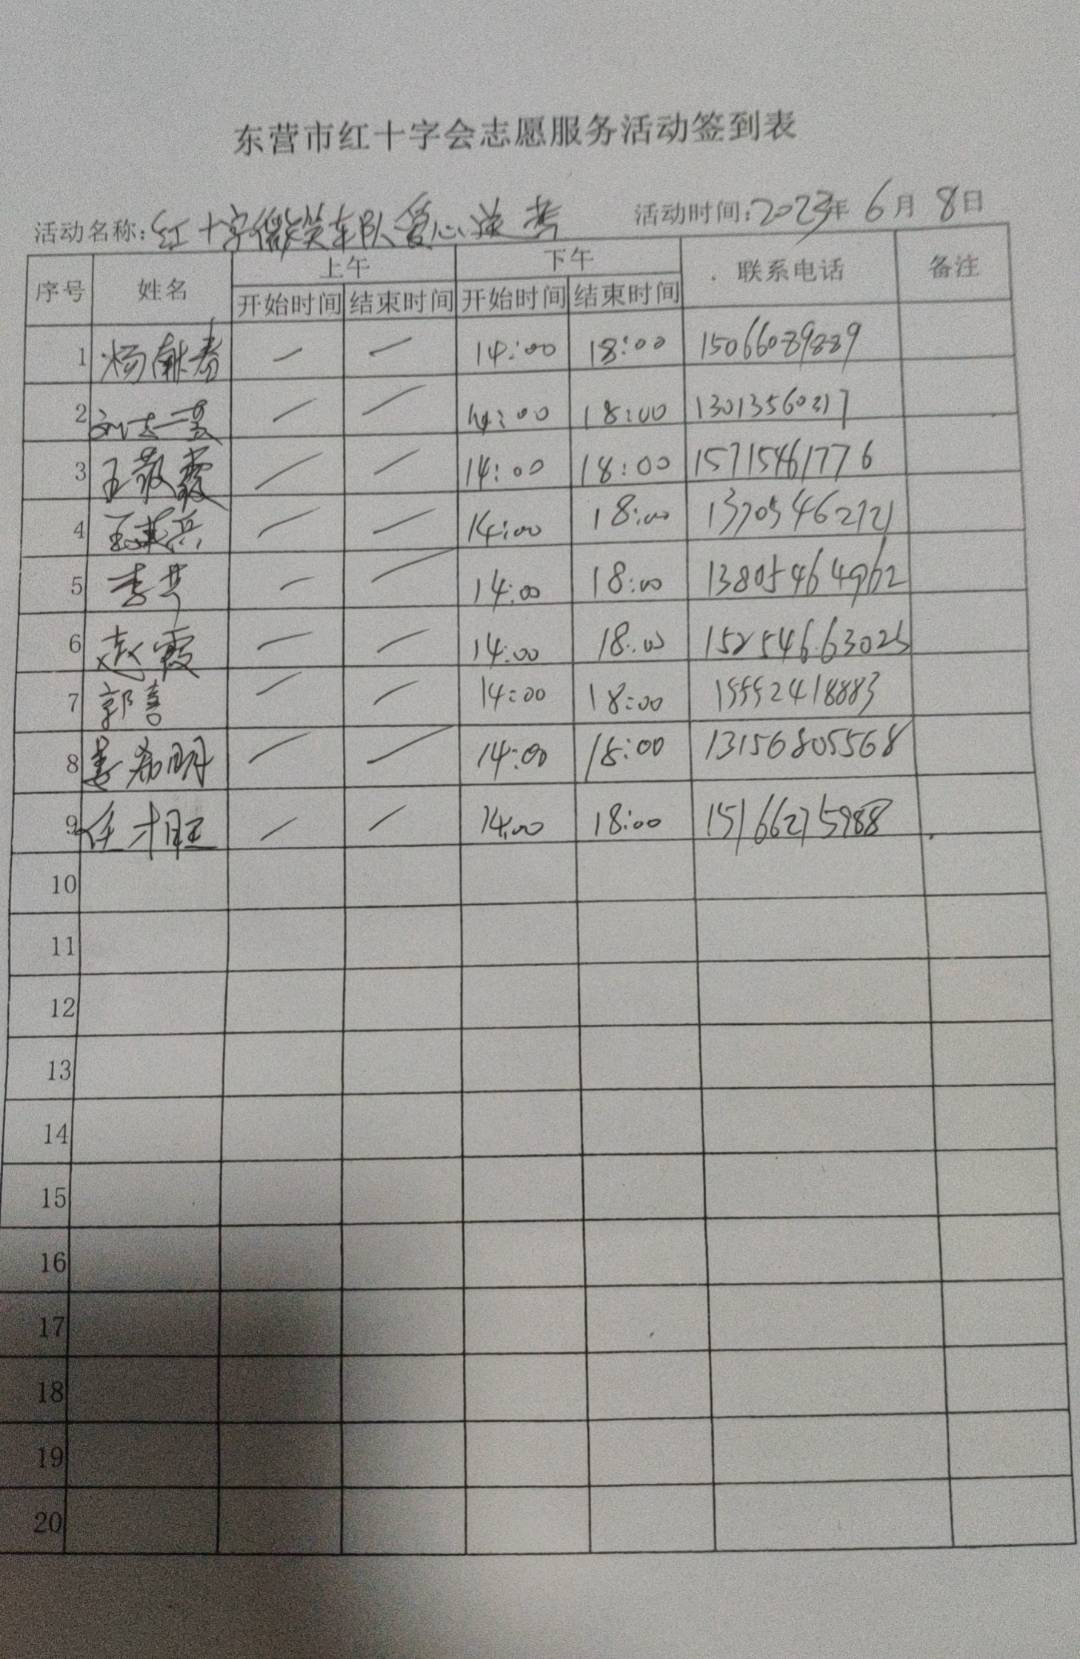 东营市红十字会志愿服务活动签到表
活动名称:红十字微笑车队爱心送考 活动时间:2023年6月8日
序号 姓名 上午 下午 联系电话 备注
开始时间 结束时间 开始时间 结束时间
1 杨献春 — — 14:00 18:00 15066089889
2 刘 14:00 18:00 13013560317
3 王敬霞 — — 14:00 18:00 15715461776
4 — — 14:00 18:00 13705462121
5 李 — — 14:00 18:00 13805464962
6 赵霞 — — 14:00 18:00 15254663025
7 郭喜 — — 14:00 18:00 15552418883
8 姜希明 — — 14:00 18:00 13156805568
9 任才旺 — — 14:00 18:00 15166275988
10
11
12
13
14
15
16
17
18
19
20